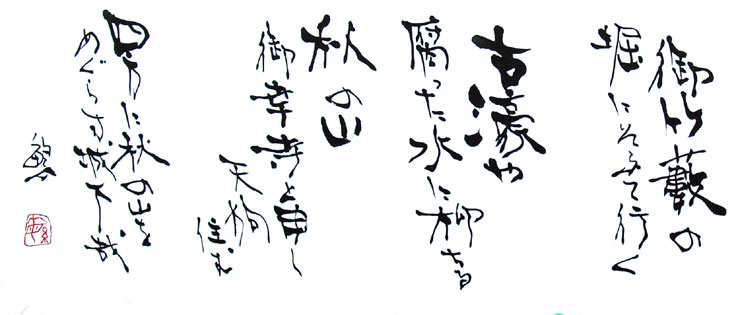 御竹藪の
堀にそふて行く
古濠や
腐った水に柳ちる
秋の山
御幸寺と申し
天狗
住む
四方に秋の山を
めぐらす城下哉